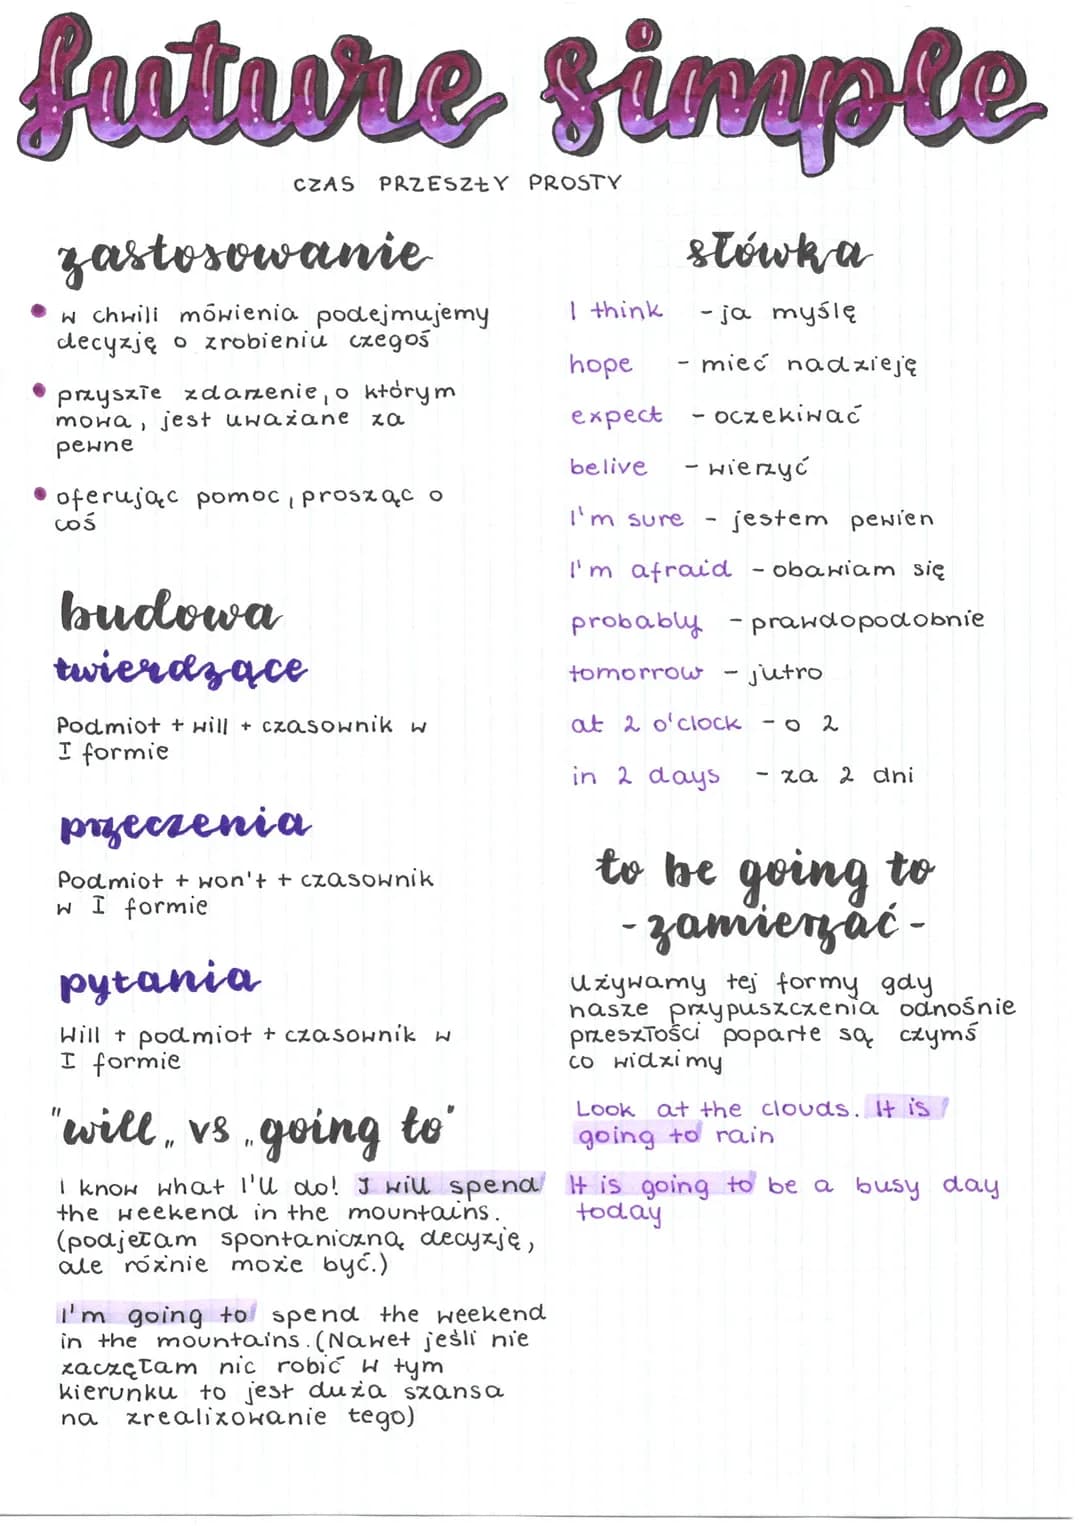 future simple
CZAS PRZESZŁY PROSTY
zastosowanie
• w chwili mówienia podejmujemy
decyzję o zrobieniu czegoś
• przyszłe zdarzenie, o którym
mowa, jest uważane za
pewne
• oferując pomoc, prosząc o
coś
budowa
twierdzące
Podmiot + will + czasownik w
I formie
przeczenia
Podmiot + won't + czasownik
w I formie
pytania
Will + podmiot + czasownik w
I formie
"will„ vs „going to"
I know what I'll do! I will spend
the weekend in the mountains.
(podjęłam spontaniczną decyzję,
ale różnie może być.)
I'm going to spend the weekend
in the mountains. (Nawet jeśli nie
zaczęłam nic robić w tym
kierunku to jest duża szansa
na zrealizowanie tego)
słówka
I think - ja myślę
hope - mieć nadzieję
expect - oczekiwać
belive - wierzyć
I'm sure - jestem pewien
I'm afraid - obawiam się
probably - prawdopodobnie
tomorrow - jutro
at 2 o'clock - o 2
in 2 days - za 2 dni
to be going to
- zamierzać -
Używamy tej formy gdy
nasze przypuszczenia odnośnie
przeszłości poparte są czymś
co widzimy
Look at the clouds. It is
going to rain
It is going to be a busy day
today